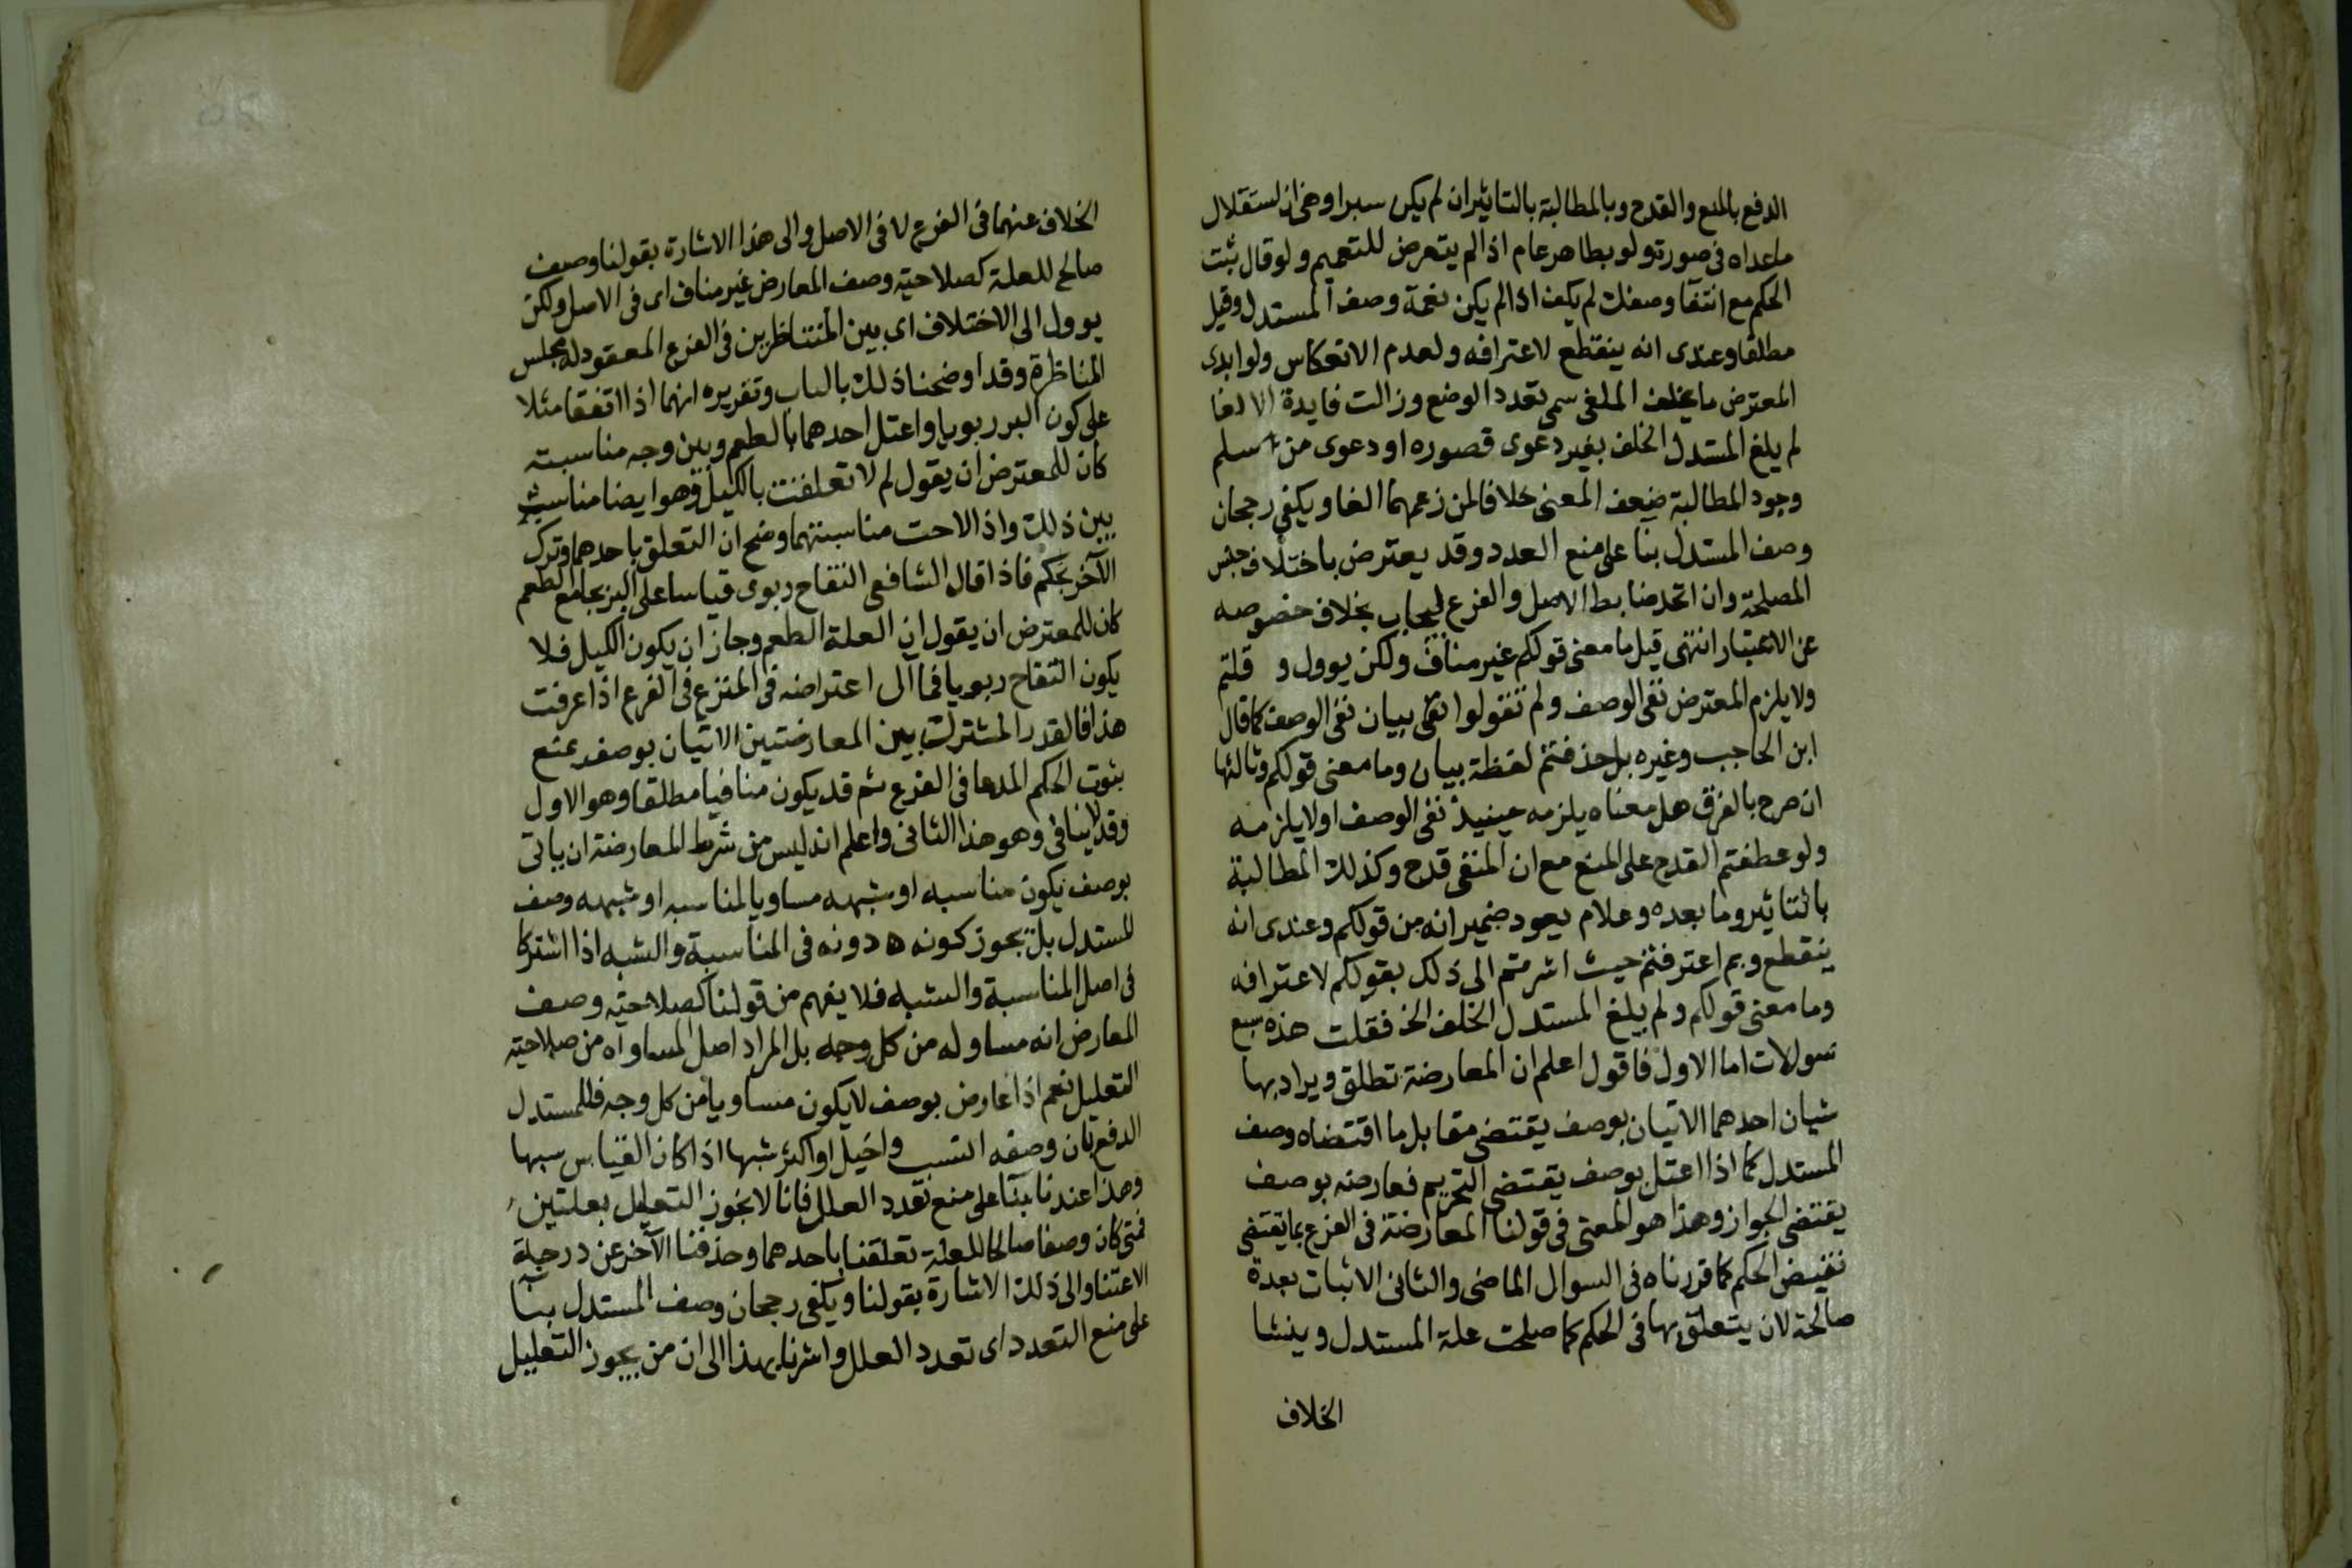 الدفع بالمنع والقدح وبالمطالبة بالتاثير ان لم يكن سبرا وبيان استقلال
ماعداه في صورة ولو بظاهر عام اذا لم يتعرض للتعميم ولو قال ثبت
الحكم مع انتفا وصفك لم يكف اذا لم يكن معه وصف المستدل وقيل
مطلقا وعندى انه ينقطع لاعترافه ولعدم الانعكاس ولو ابدى
المعترض ما يخلف الملغى سمى تعدد الوضع وزالت فايدة الالغا
لم يلغ المستدل الخلف بغير دعوى قصوره او دعوى من سلم
وجود المطالبة ضعف المعنى خلافا لمن زعمهما الغا ويكفى رجحان
وصف المستدل بنا على منع العدد وقد يعترض باختلاف جنس
المصلحة وان اتحد ضابط الاصل والفرع ليجاب بخلاف خصوصه
عن الاعتبار انتهى قيل ما معنى قولكم غير مناف ولكن يوول و قلتم
ولا يلزم المعترض نفى الوصف ولم تقولوا نفى بيان نفى الوصف كما قال
ابن الحاجب وغيره بل حذفتم لفظة بيان وما معنى قولكم وثالثها
ان صرح بالفرق هل معناه يلزمه حينيذ نفى الوصف او لا يلزمه
ولو عطفتم القدح على المنع مع ان المنفى قدح وكذلك المطالبة
بالتاثير وما بعده وعلام يعود ضمير انه من قولكم وعندى انه
ينقطع وبم اعترفتم حيث اشرتم الى ذلك بقولكم لاعترافه
وما معنى قولكم ولم يلغ المستدل الخلف الخ فقلت هذه سبع
سولات اما الاول فاقول اعلم ان المعارضة تطلق ويراد بها
شيان احدهما الاتيان بوصف يقتضى مقابل ما اقتضاه وصف
المستدل كما اذا اعتل بوصف يقتضى التحريم فعارضه بوصف
يقتضى الجواز وهذا هو المعنى فى قولنا المعارضة فى الفرع بما يقتضى
نقيض الحكم كما قررناه فى السوال الماضى والثانى الاثبات بعدة
صالحة لان يتعلق بها فى الحكم كما صلحت علة المستدل وينشا
الخلاف
الخلاف عنهما فى الفرع لا فى الاصل والى هذا الاشارة بقولنا وصف
صالح للعلة كصلاحية وصف المعارض غير مناف اى فى الاصل ولكن
يوول الى الاختلاف اى بين المتناظرين فى الفرع المعقود له مجلس
المناظرة وقد اوضحنا ذلك بالباب وتقريره انهما اذا اتفقا مثلا
على كون البر ربويا واعتل احدهما بالطعم وبين وجه مناسبته
كان للمعترض ان يقول لم لا تعلقت بالكيل وهو ايضا مناسب
يبين ذلك واذا لاحت مناسبتهما وضح ان التعلق باحدهما وترك
الآخر تحكم فاذا قال الشافعى التفاح ربوى قياسا على البر بجامع الطعم
كان للمعترض ان يقول ان العلة الطعم وجاز ان يكون الكيل فلا
يكون التفاح ربويا فما آل اعتراضه فى المنزع فى الفرع اذا عرفت
هذا فالقدر المشترك بين المعارضتين الاتيان بوصف يمنع
بثوت الحكم المدعا فى الفرع ثم قد يكون منافيا مطلقا وهو الاول
وقد لا ينافى وهو هذا الثانى واعلم انه ليس من شرط المعارضة ان ياتى
بوصف يكون مناسبه او شبهه مساويا لمناسبه او شبهه وصف
المستدل بل يجوز كونه ه دونه فى المناسبة والشبه اذا اشتركا
فى اصل المناسبة والشبه فلا يفهم من قولنا كصلاحية وصف
المعارض انه مساو له من كل وجه بل المراد اصل المساواه من صلاحية
التعليل نعم اذا عارض بوصف لا يكون مساويا من كل وجه فللمستدل
الدفع بان وصفه انسب واخيل او اكثر شبها اذا كان القياس سبها
وهذا عندنا بنآ على منع تعدد العلل فانا لا نجوز التعليل بعلتين
فمتى كان وصفا صالحا للعلة تعلقنا باحدهما وحذفنا الآخر عن درجة
الاعتنا والى ذلك الاشارة بقولنا ويكفى رجحان وصف المستدل بنآ
على منع التعدد اى تعدد العلل واشرنا بهذا الى ان من يجوز التعليل